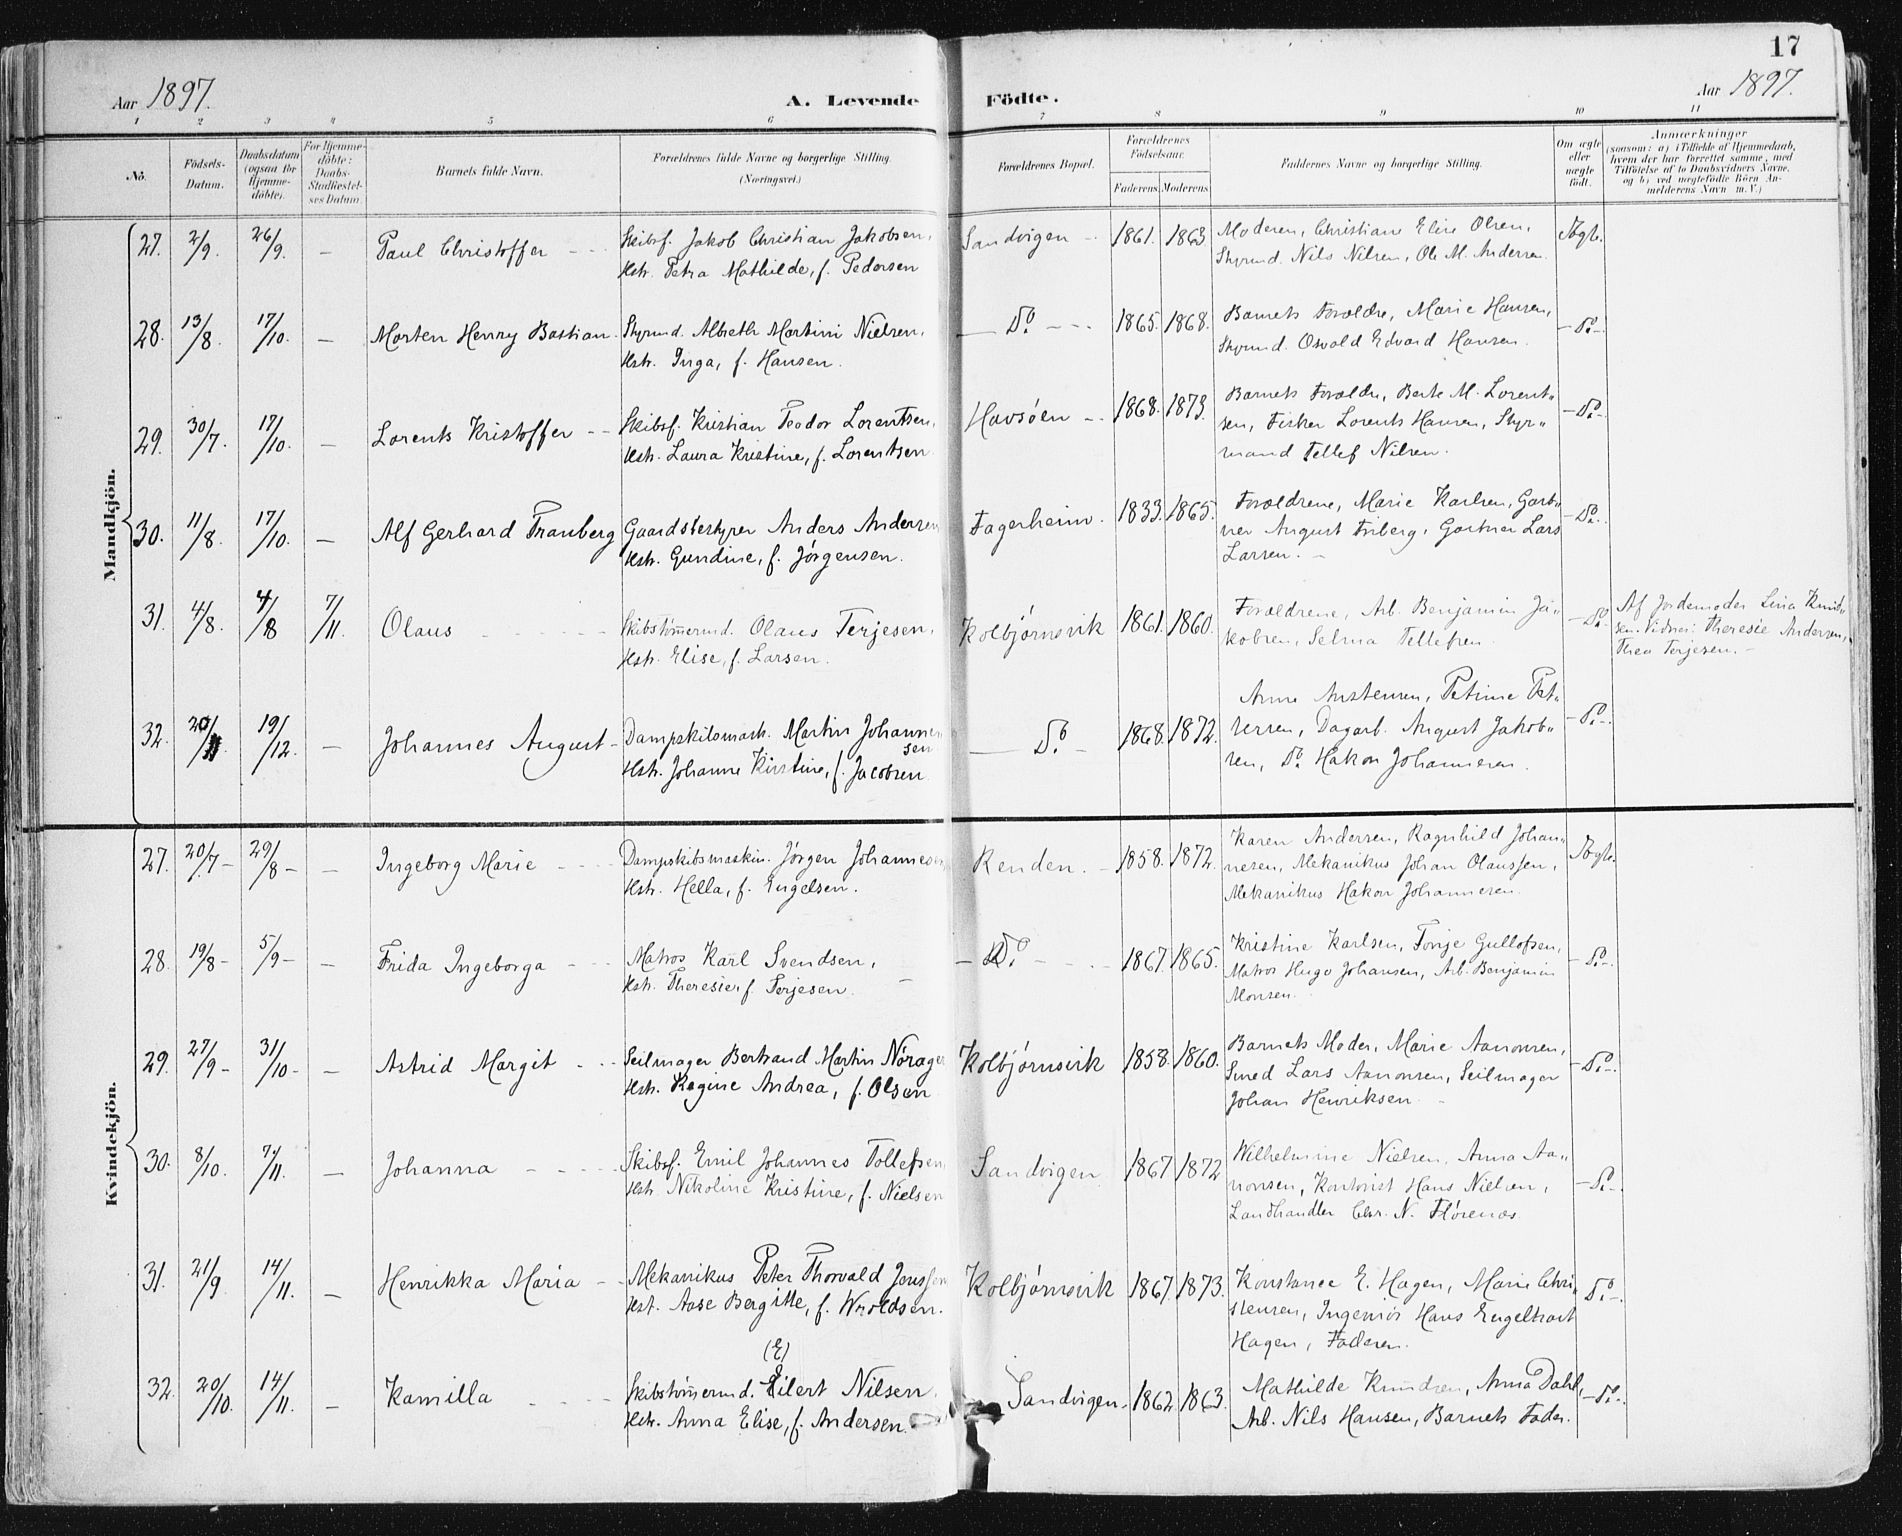 17
Aar 1897.
A. Levende Födte.
Aar 1897.
1 2 3 4 5 6 7 8 9 10 11
No.
Födsels-Datum.
Daabsdatum (ogsaa for Hjemme-döbte).
For Hjemme-döbte: Daabs-Stadfæstel-ses Datum.
Barnets fulde Navn.
Forældrenes fulde Navne og borgerlige Stilling. (Næringsvei.)
Forældrenes Bopæl.
Forældrenes Födselsaar.
Faderens Moderens
Faddernes Navne og borgerlige Stilling.
Om ægte eller uægte födt.
Anmærkninger
(saasom: a) i Tilfælde af Hjemmedaab,
hvem der har forrettet samme, med
Tilföielse af to Daabsvidners Navne,
og b) ved uægtefödte Börn An-
melderens Navn m. V.)
Mandkjön.
27. 2/9. 26/9. — Paul Christoffer Skibsf. Jakob Christian Jakobsen, Sandvigen 1861. 1863 Moderen, Christiane Elise Olsen, Ægte.
Hstr. Petra Mathilde, f. Pedersen Styrmd. Nils Nilsen, Ole M. Andersen.
28. 13/8. 17/10. — Morten Henry Bastian Styrmd. Albreth Martini Nielsen, Do 1865. 1868. Barnets Forældre, Marie Hansen, Do
Hstr. Inga, f. Hansen. Styrmd. Osvald Edvard Hansen.
29. 30/7. 17/10. — Lorents Kristoffer Skibsf. Kristian Teodor Lorentsen, Havsöen 1868. 1873. Barnets Forældre, Berte M. Lorent- Do
Hstr. Laura Kristine, f. Lorentsen sen, Fisker Lorents Hansen, Styr-
mand Tellef Nilsen.
30. 11/8. 17/10. — Alf Gerhard Tranberg Gaardsbestyrer Anders Andersen Fagerheim. 1833. 1865. Forældrene, Marie Karlsen, Gart- Do
Hstr. Gundine, f. Jörgensen. ner August Friberg, Gartner Lars
Larsen.
31. 4/8. 4/8 7/11. Olaus Skibstömmermd. Olaus Terjesen, Kolbjörnsvik 1861. 1860. Forældrene, Arb. Benjamin Ja- Do Af Jordemoder Lina Knud-
Hstr. Elise, f. Larsen. kobsen, Selma Tellefsen sen. Vidner: Theresie Andersen,
Thea Terjesen.
32. 20/11. 19/12. — Johannes August Dampskibsmask. Martin Johannes- Do 1868. 1872. Anne Austensen, Petrine Pet- Do
sen
Hstr. Johanne Kirstine, f. Jacobsen. tersen, Dagarb. August Jakob-
sen, Do Hakon Johannesen.
Kvindekjön.
27. 20/7 29/8 — Ingeborg Marie Dampskibsmaskin. Jörgen Johannesen, Renden. 1858. 1872. Karen Andersen, Ragnhild Johan- Ægte.
Hstr. Hella, f. Engelsen. nesen, Mekanikus Johan Olaussen,
Mekanikus Hakon Johannesen.
28. 19/8 5/9 — Frida Ingeborga Matros Karl Svendsen, Do 1867. 1865. Kristine Karlsen, Tonje Gullofsen, Do
Hstr. Theresie, f. Terjesen. Matros Hugo Johansen, Arb. Benjamin
Monsen.
29. 27/9 31/10 — Astrid Margit Seilmager Bertrand Martin Nörager Kolbjörnsvik 1858. 1860. Barnets Moder, Marie Aanonsen, Do
Hstr. Regine Andrea, f. Olsen Smed Lars Aanonsen, Seilmager
Johan Henriksen.
30. 8/10. 7/11. — Johanna Skibsf. Emil Johannes Tollefsen, Sandvigen 1867 1872 Wilhelmine Nielsen, Anna Aa- Do
Hstr. Nikoline Kristine, f. Nielsen nonsen, Kontorist Hans Nielsen,
Landhandler Chr. N. Flörenæs.
31. 21/9. 14/11. — Henrikka Maria Mekanikus Peter Thorvald Jenssen Kolbjörnsvik 1867. 1873. Konstance E. Hagen, Marie Chri- Do
Hst. Aase Bergitte, f. Wroldsen. stensen, Ingeniör Hans Engelhart
Hagen, Faderen.
(E)
32. 20/10. 14/11. — Kamilla Skibstömmermd. Eilert Nilsen, Sandvigen. 1862 1863. Mathilde Knudsen, Anna Dahl, Do
Hstr. Anna Elise, f. Andersen. Arb. Nils Hansen, Barnets Fader.